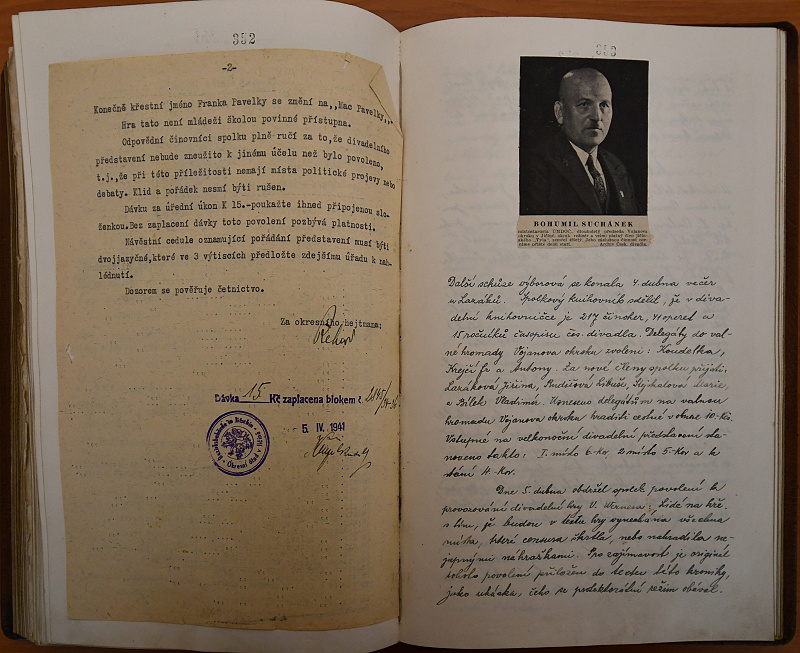 352
-2-
Konečně křestní jméno Franka Pavelky se změní na,,Mac Pavelky,,.
Hra tato není mládeži školou povinné přístupna.
Odpovědní činovníci spolku plně ručí za to,že divadelního
představení nebude zneužito k jinému účelu než bylo povoleno,
t.j.,že při této příležitosti nemají místa politické projevy nebo
debaty. Klid a pořádek nesmí býti rušen.
Dávku za úřední úkon K 15.-poukažte ihned připojenou slo-
ženkou.Bez zaplacení dávky toto povolení pozbývá platnosti.
Návěstní cedule oznamující pořádání představení musí býti
dvojjazyčné,které ve 3 výtiscích předložte zdejšímu úřadu k na-
hlédnutí.
Dozorem se pověřuje četnictvo.
Za okresního hejtmana:
Dávka 15 Kč zaplacena blokem č.
5. IV. 1941
353
BOHUMIL SUCHÁNEK
Další schůze výborová se konala 4 dubna večer
u Lazáků. Spolkový knihovník sdělil, že v diva-
delní knihovničce je 217 činoher, 41 operet a
15 ročníků časopisu čes. divadla. Delegáty do val-
né hromady Vojanova okrsku zvoleni: Koudelka,
Krejčí Fr a Antony. Za nové členy spolku přijati,
Lazáková Jiřina, Rudišová Libuše, Stýskalová Marie
a Bílek Vladimír. Usneseno delegátům na valnou
hromadu Vojanova okrsku hraditi cestné v obnose 10-Kč.
Vstupné na velkonoční divadelní představení sta-
noveno takto: I. místo 6-Kor, 2 místo 5-Kor a k
stání 4-Kor.
Dne 5. dubna obdržel spolek povolení k
provozování divadelní hry V. Wernera: Lidé na kře,
s tím, že budou v textu hry vynechána všechna
místa, které censura škrtla, nebo nahradila ne-
japnými náhražkami. Pro zajímavost je originál
tohoto povolení přiložen do textu této kroniky,
jako ukázka, čeho se protektorátní režim obával.